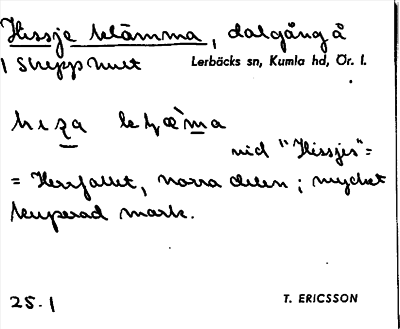 Hissje klämma, dalgång å
Skepphult Lerbäcks sn, Kumla hd, Ör. l.
vid "Hissjes" =
= Herrfallet, norra delen; mycket
kuperad mark.
25. 1 T. ERICSSON